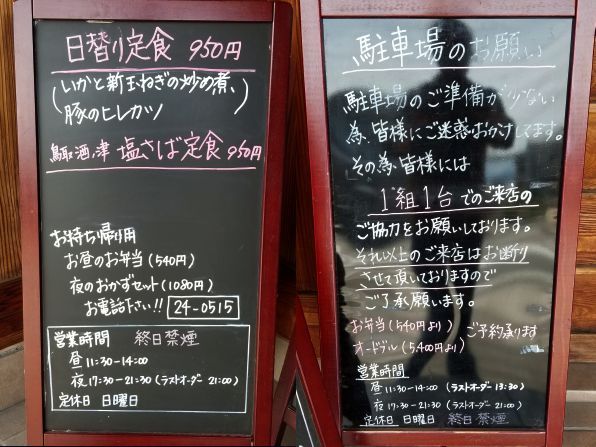 日替り定食 950円
(いかと新玉ねぎの炒め煮、
豚のヒレカツ)
鳥取酒ノ津 塩さば定食 950円
お持ち帰り用
お昼のお弁当 (540円)
夜のおかずセット (1080円)
お電話下さい!! 24-0515
営業時間 終日禁煙
昼 11:30-14:00
夜 17:30-21:30 (ラストオーダー 21:00)
定休日 日曜日
駐車場のお願い
駐車場のご準備が少ない
為、皆様にご迷惑おかけしてます。
その為、皆様には
1組1台でのご来店の
ご協力をお願いしております。
それ以上のご来店はお断り
させて頂いておりますので
ご了承願います。
お弁当 (540円より) ご予約承ります
オードブル (5,400円より)
営業時間
昼 11:30-14:00 (ラストオーダー 13:30)
夜 17:30-21:30 (ラストオーダー 21:00)
定休日 日曜日 終日禁煙